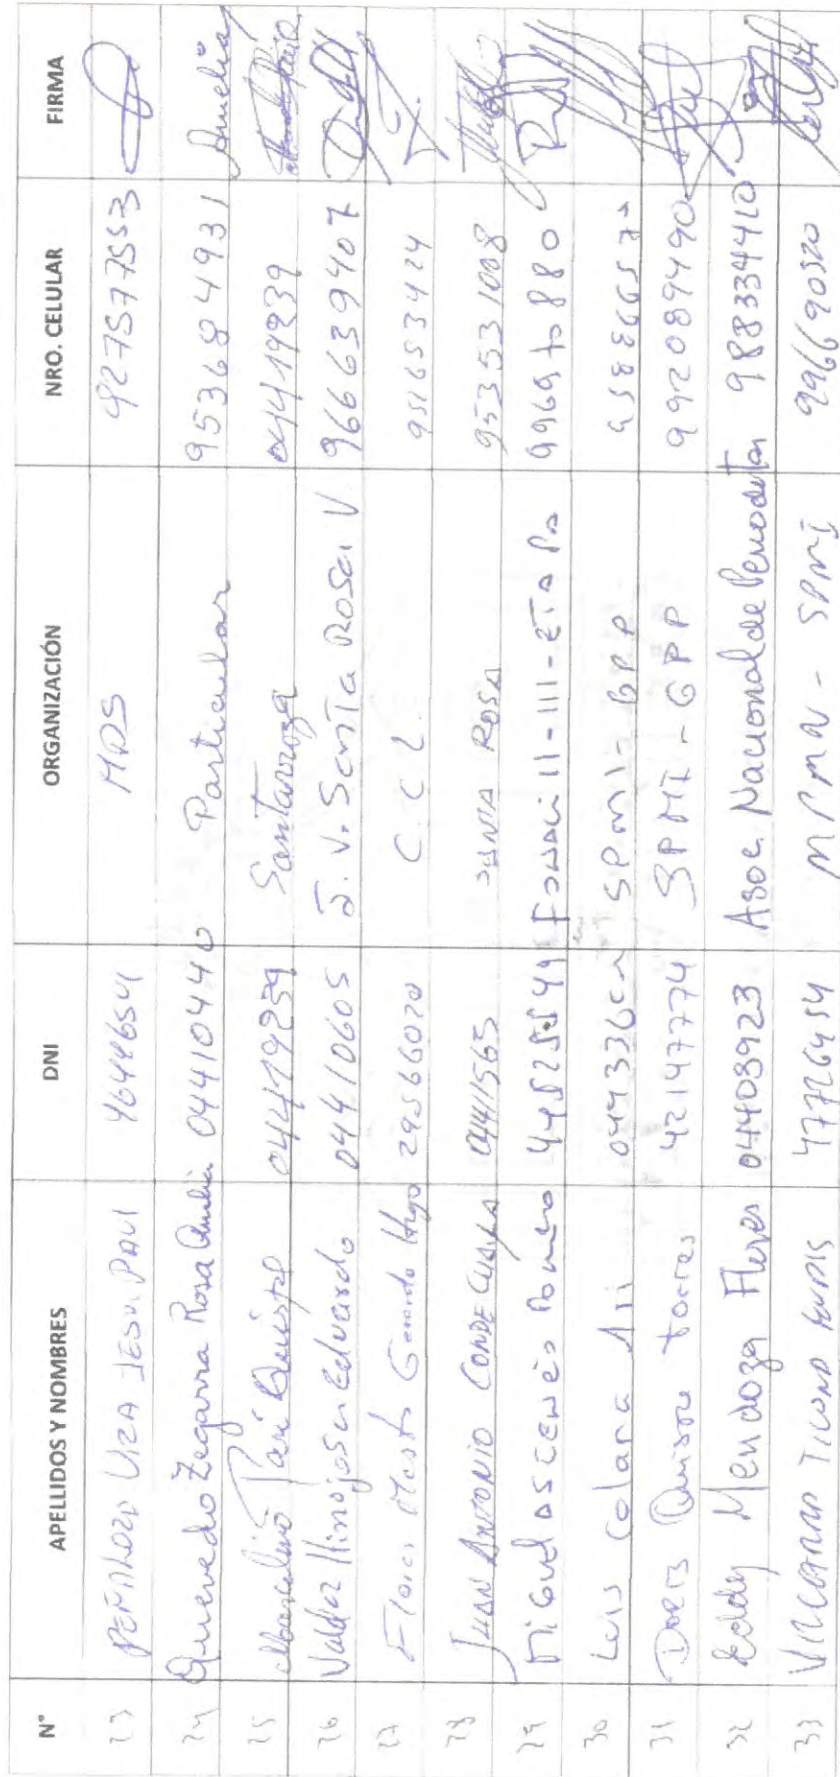 N° APELLIDOS Y NOMBRES DNI ORGANIZACIÓN NRO. CELULAR FIRMA
23 PEÑALOZA VIZA JESUS PAUL 46446541 MDS 927577553
24 Quevedo Zegarra Rosa Amelia 04410440 Particular 953684931 Amelia
25 Marcelino Pari Quispe 04419259 Santarrosa
26 Valdez Hinojosa Eduardo 04410605 J. V. Santa Rosa V 966639407
27 Flores Gerardo Hugo 29566020 C.C.L. 951653424
28 JUAN ANTONIO CONDE CUAYLA 04411565 SANTA ROSA 953531008
29 MIGUEL ASCENCIO Romero II - III - ETAPA
30 Luis Calara Ali SPMI - GPP
31 DORIS Quispe torres 42147774 SPMI - GPP 992089490
32 Eddy Mendoza Flores 04403923 Asoc. Nacional de Periodistas 988334410
33 VIZCARRA TICONA 47726454 MPMN - SPMI 996690520